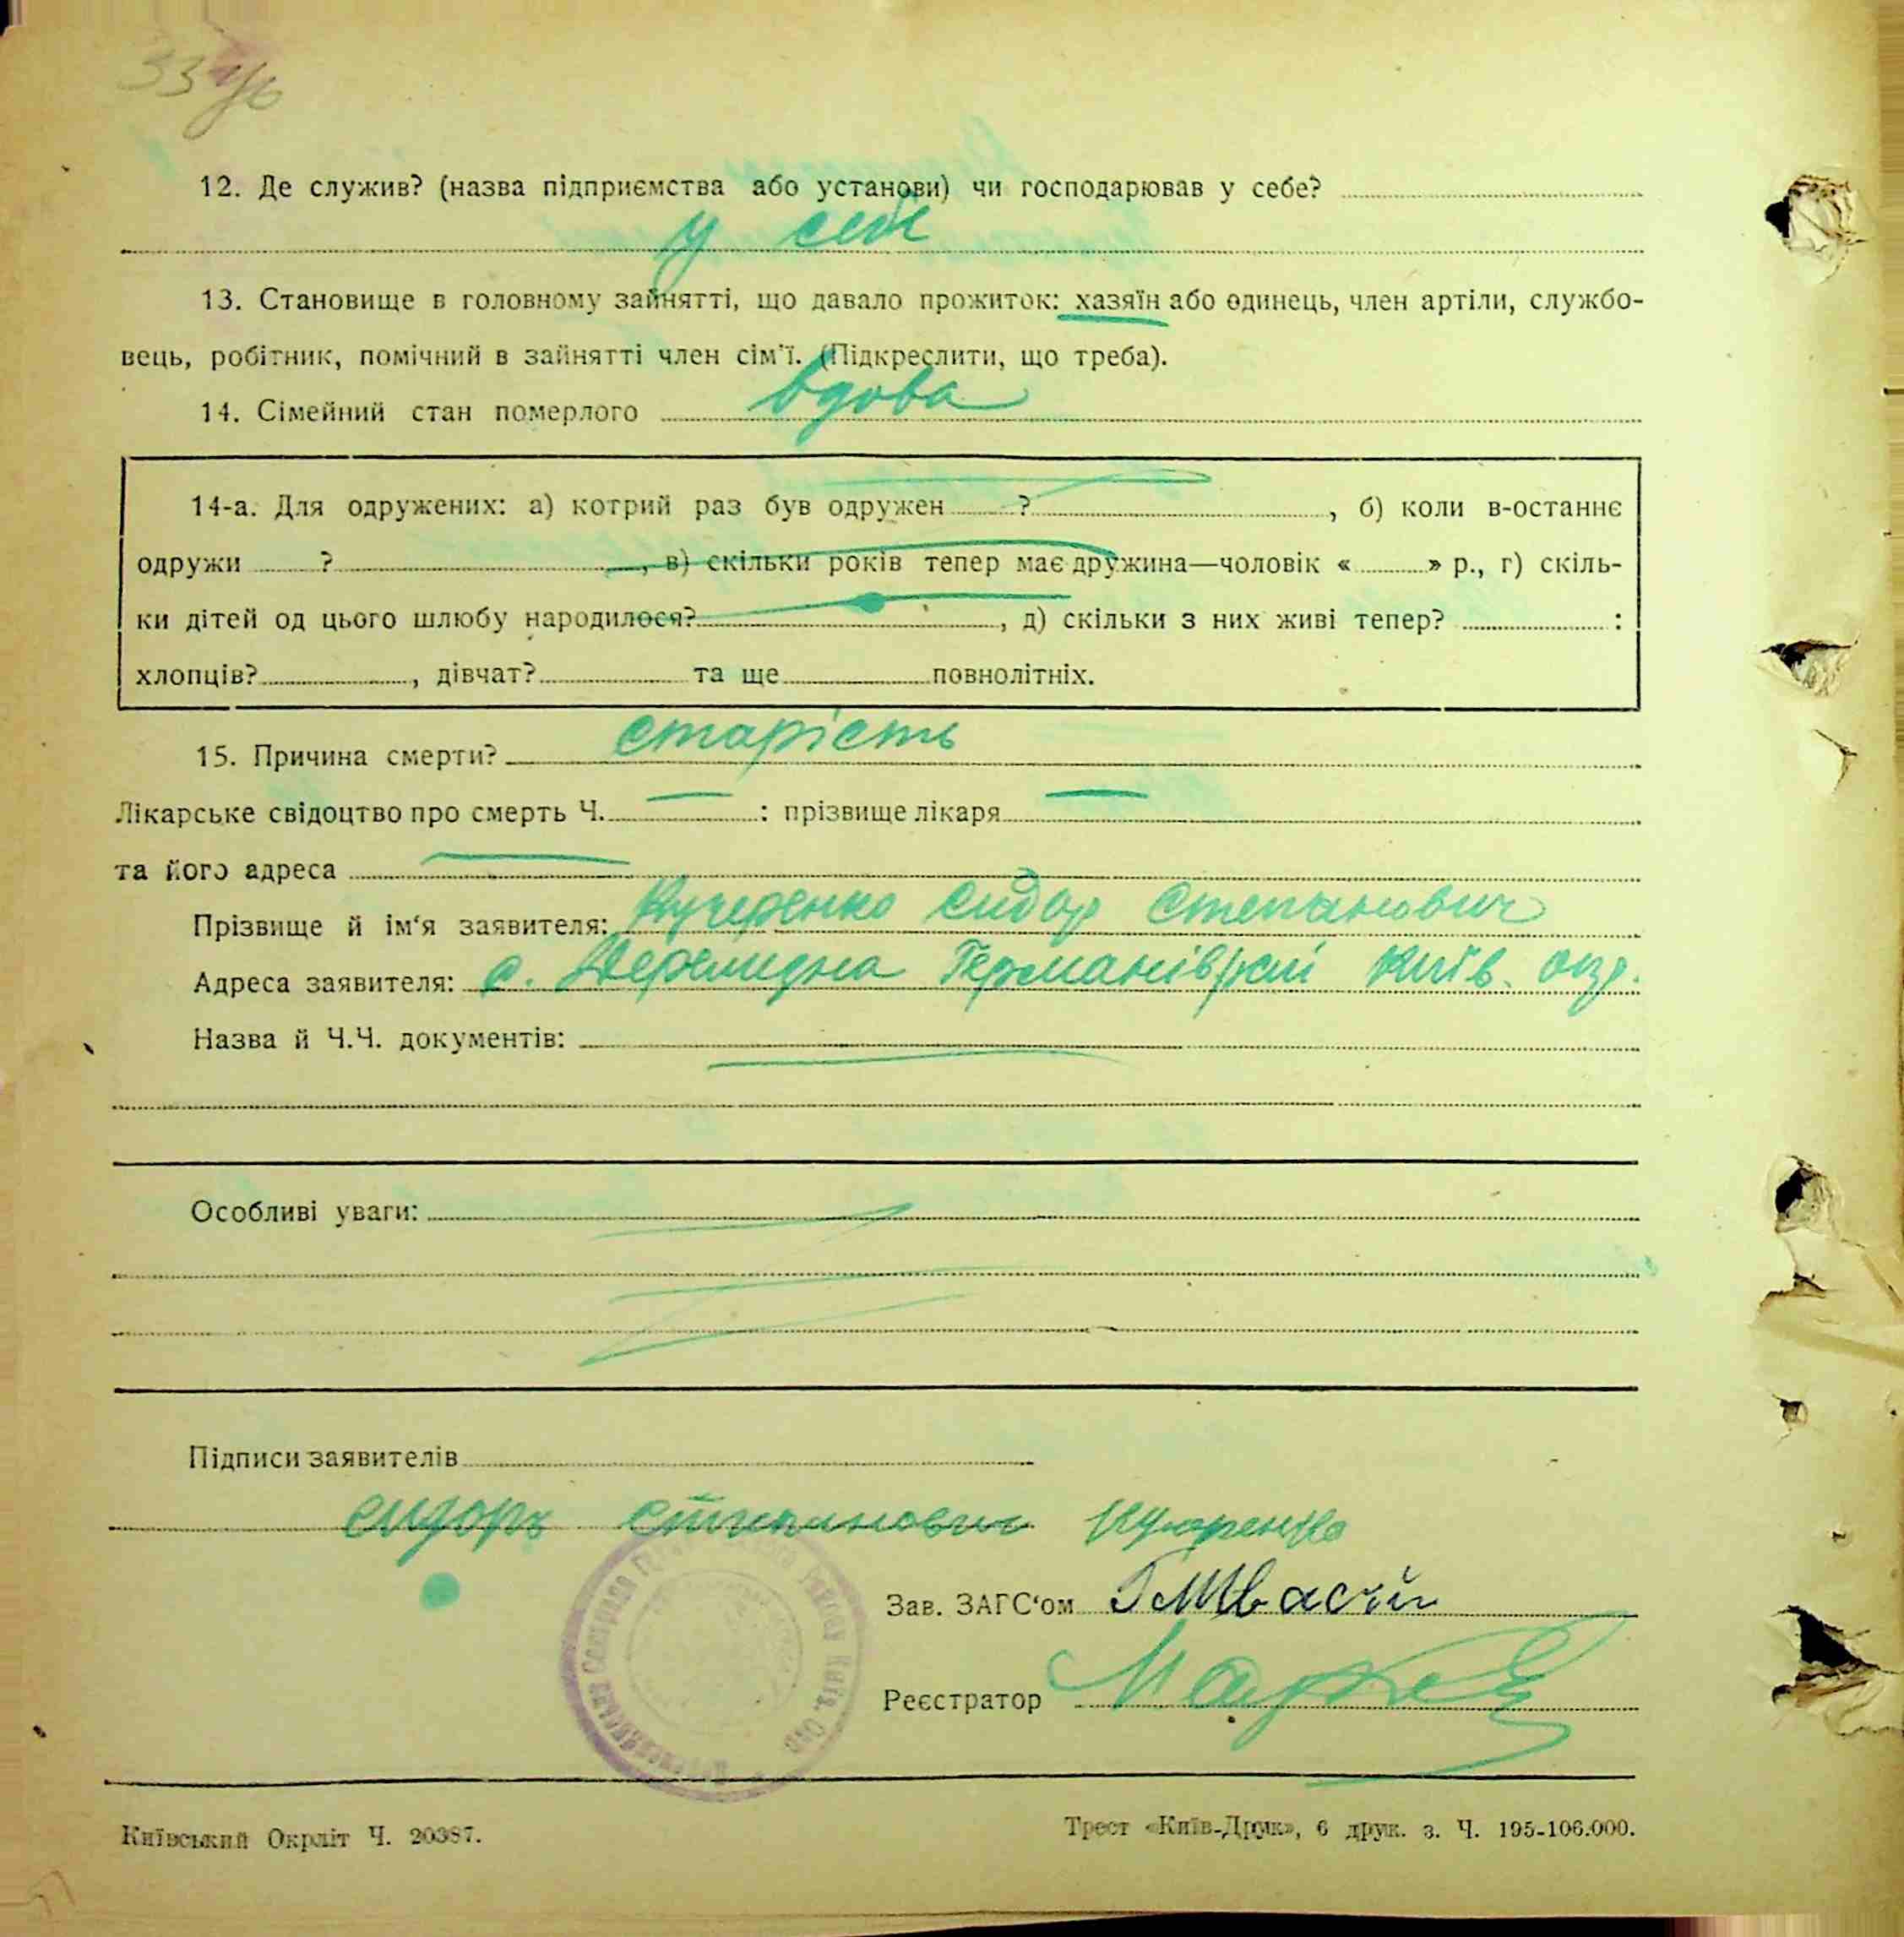 12. Де служив? (назва підприємства або установи) чи господарював у себе?
у себе
13. Становище в головному зайнятті, що давало прожиток: хазяїн або одинець, член артіли, службо-
вець, робітник, помічний в зайнятті член сім'ї. (Підкреслити, що треба).
14. Сімейний стан померлого вдова
14-а. Для одружених: а) котрий раз був одружен ? , б) коли в-останнє
одружи ? , в) скільки років тепер має дружина—чоловік « » р., г) скіль-
ки дітей од цього шлюбу народилося? , д) скільки з них живі тепер? :
хлопців? , дівчат? та ще повнолітніх.
15. Причина смерти? старість
Лікарське свідоцтво про смерть Ч. : прізвище лікаря
та його адреса
Прізвище й ім'я заявителя: Кучеренко Сидор Степанович
Адреса заявителя: с. Германівський Київ. окр.
Назва й Ч.Ч. документів:
Особливі уваги:
Підписи заявителів
Сидоръ Степанович
Зав. ЗАГС'ом
Реєстратор
Київський Окрліт Ч. 20387.
Трест «Київ-Друк», 6 друк. з. Ч. 195-106.000.